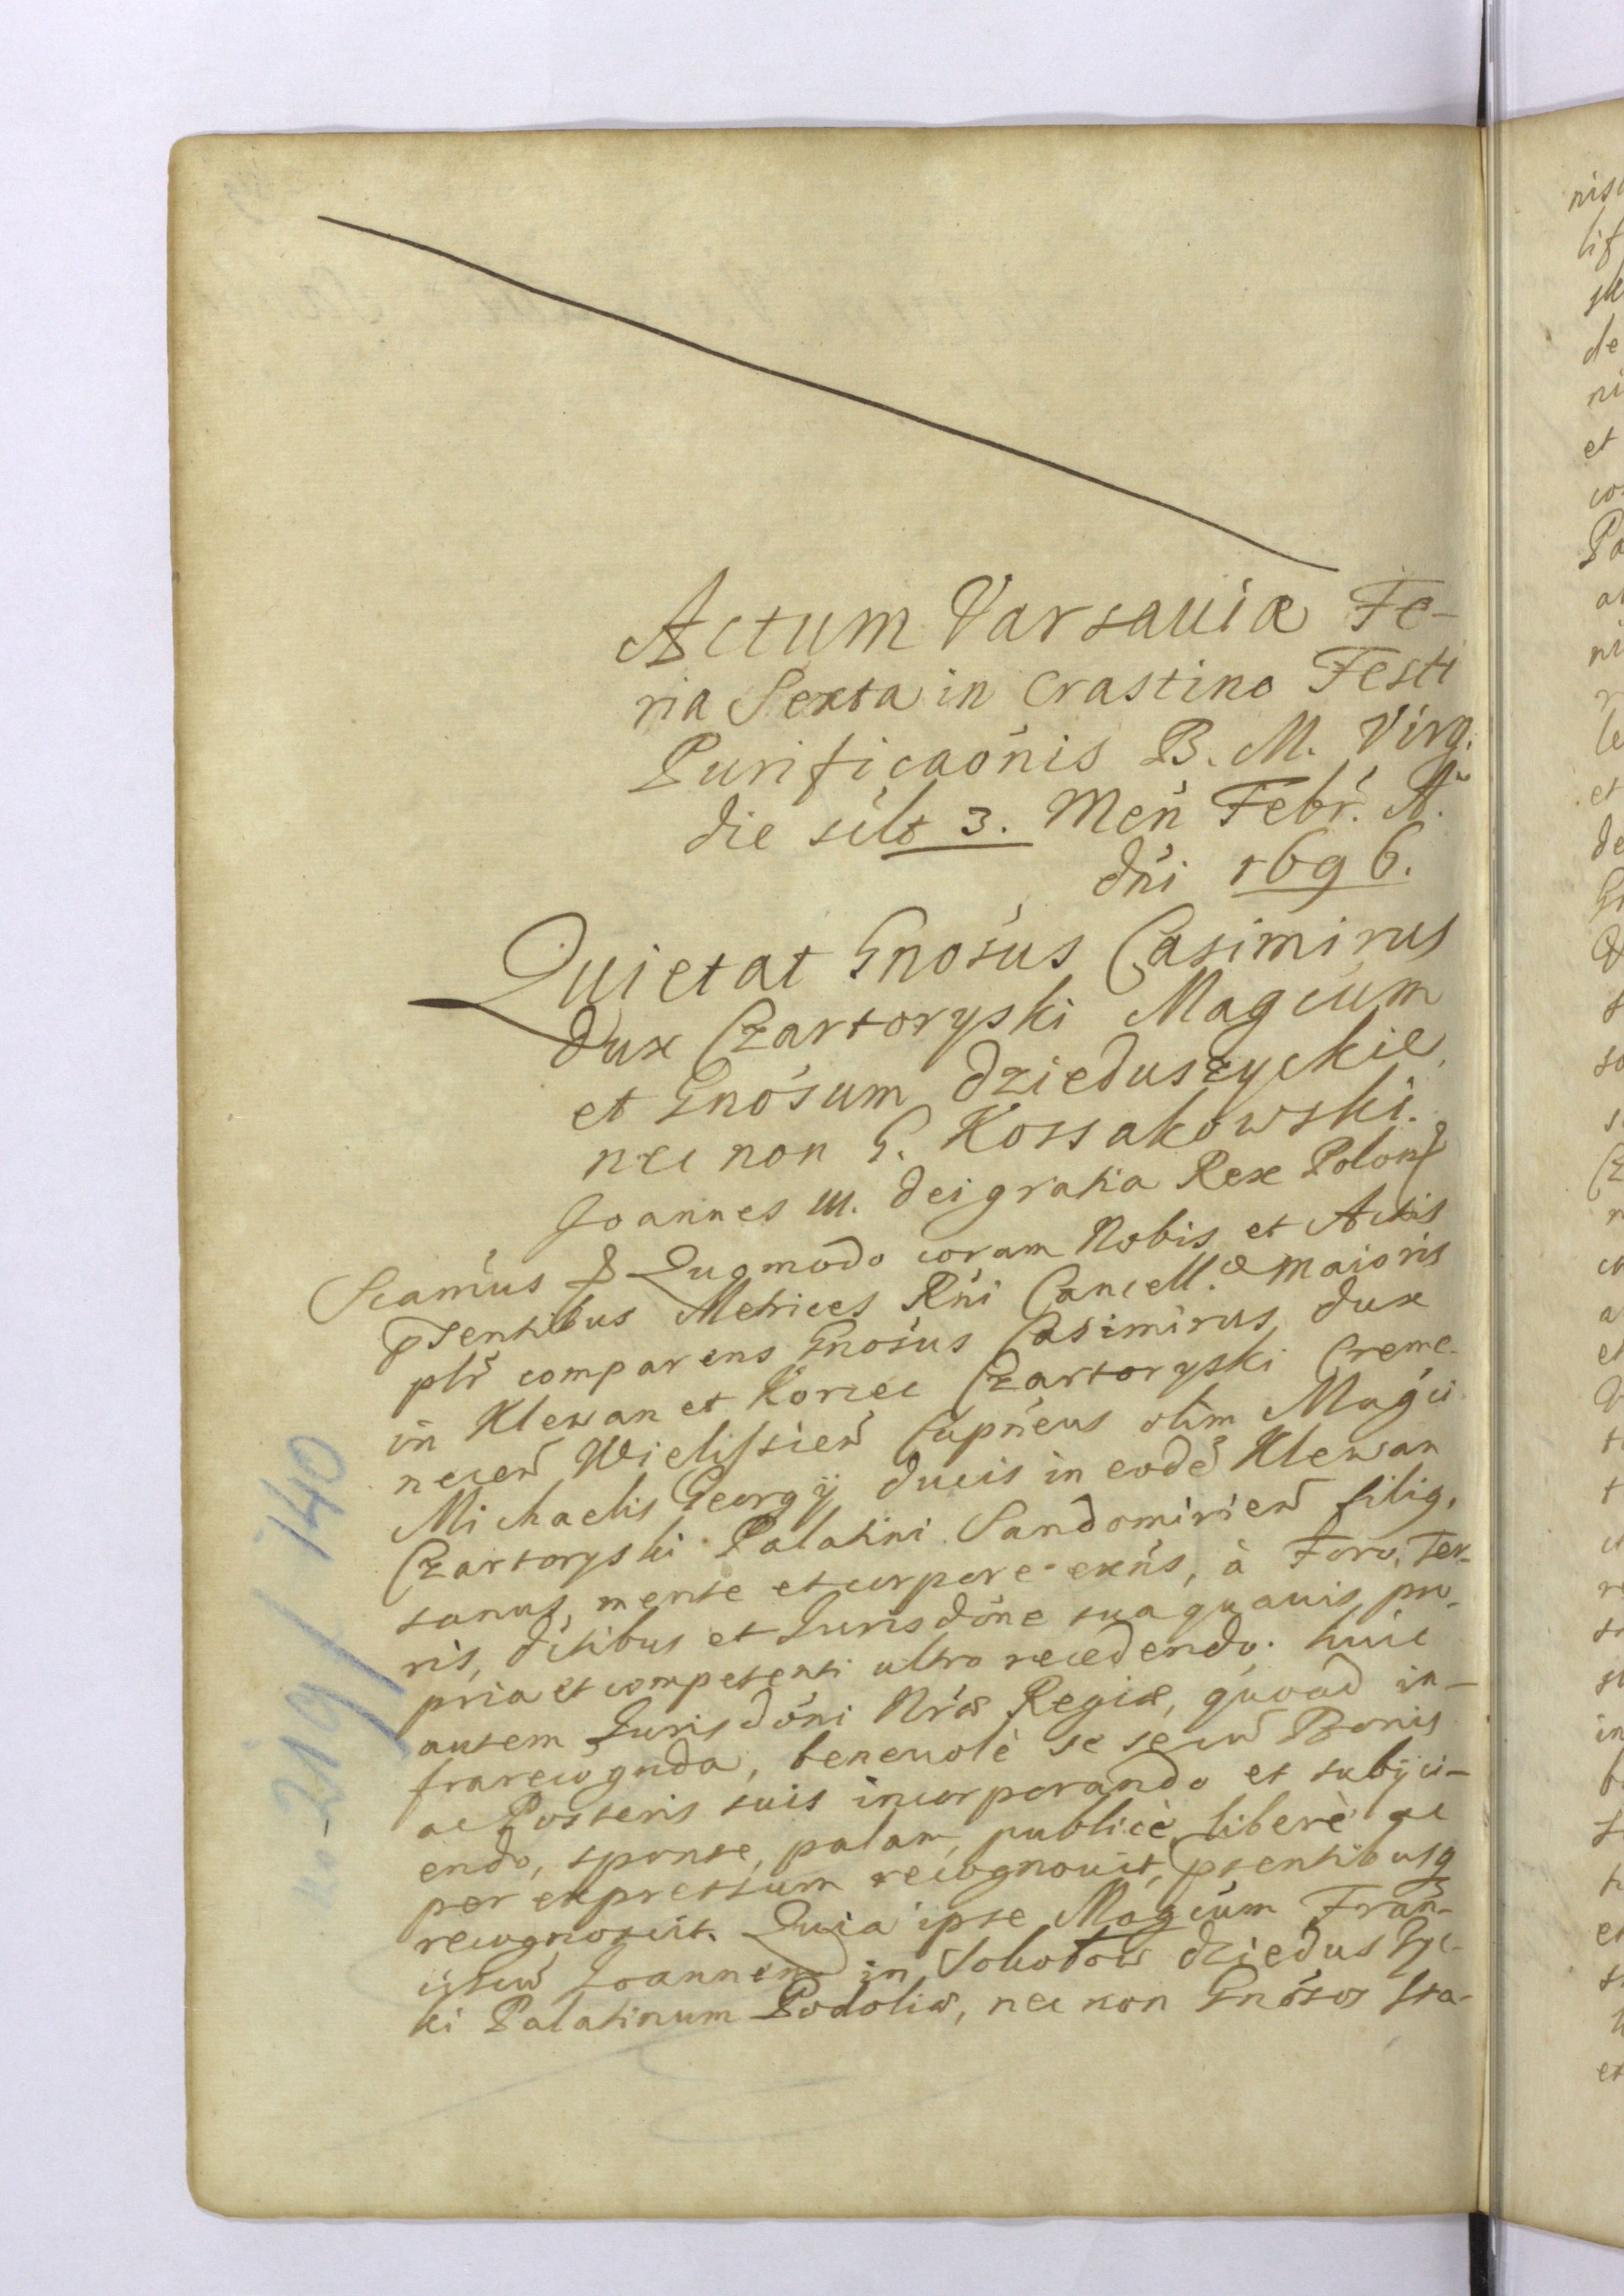 Actum Varsaviæ Fe-
ria Sexta in Crastino Festi
Purificaonis B. M. Virg.
die silt 3. Men Febr. A.
dni 1696.
Quietat Gnosus Casimirus
Dux Czartoryski Magcum
et Gnosum Dzieduszyckie,
nec non G. Kossakowski.
Joannes III. Dei gratia Rex Polon
Scamus Quomodo coram Nobis et Actis
pntentibus Metrices Rni Cancell. Maioris
plr comparens Gnosus Casimirus Dux
in Klewan et Korzec Czartoryski Creme-
necen Wielissien Capneus olim Magci
Michaelis Georgij Ducis in eode Klewan
Czartoryski Palatini Sandomirien filig,
sanus, mente et corpore exns, à Foro, Ter-
ris, dctibus et Jurisdone sua quavis pro-
pria et competenti ultro recedendo: huic
autem Jurisdoni Nræ Regiæ, quoad in-
frarecognda, benevolè se se cu Bonis
ac Posteris suis incorporando et subijci-
endo, sponte, palam, publicè, liberè ac
per expressum recognovit, psentibusq
recognoscit. Quia ipse Magcum Fran-
ciscu Joannem in Sokolow Dzieduszyc-
ki Palatinum Podoliæ, nec non Gnosos Sta-
no-219/140